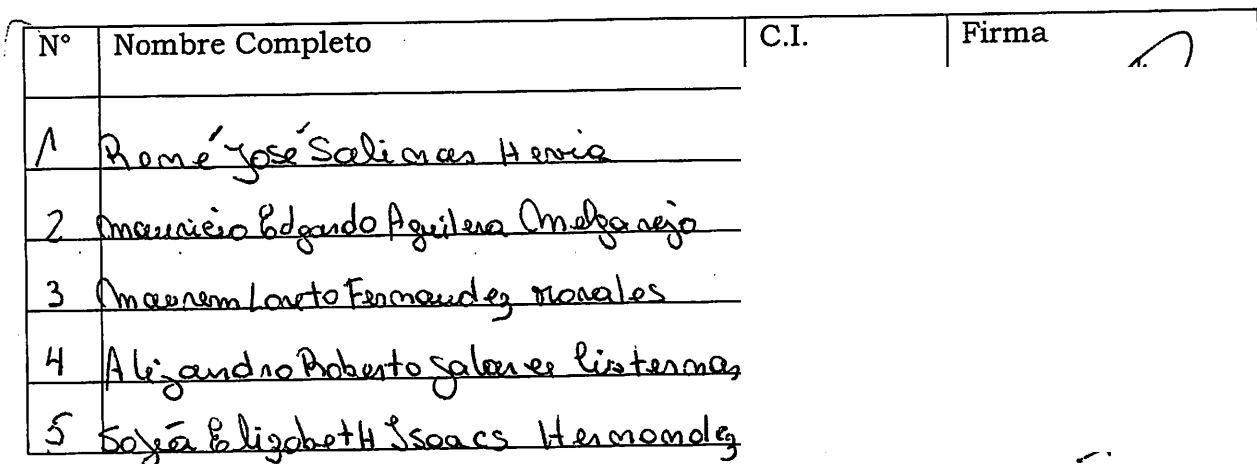 N° Nombre Completo C.I. Firma
1 René José Salinas Hevia
2 Mauricio Edgardo Aguilera Melgarejo
3 Maurem Loreto Fernandez Morales
4 Alejandro Roberto
5 Elizabeth Isaacs Hernandez